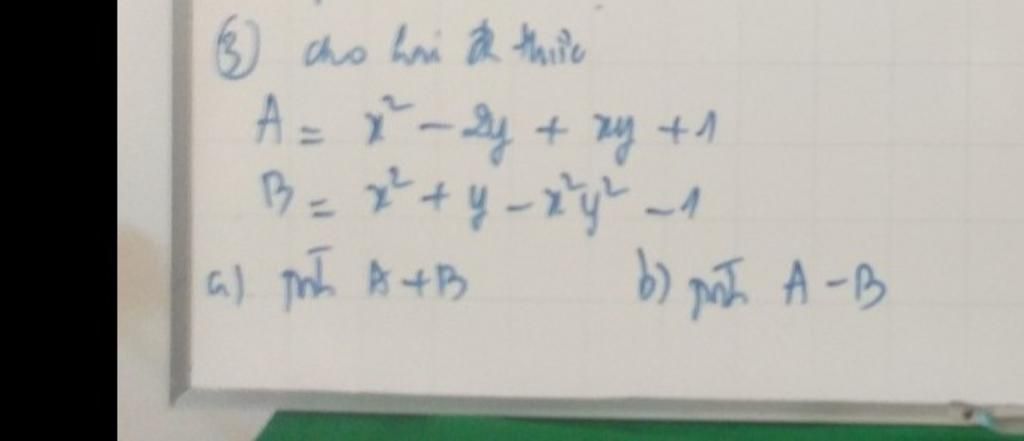 ③ cho hai đa thức
A = x² - 2y + xy + 1
B = x² + y - x²y² - 1
a) Tính A + B b) Tính A - B